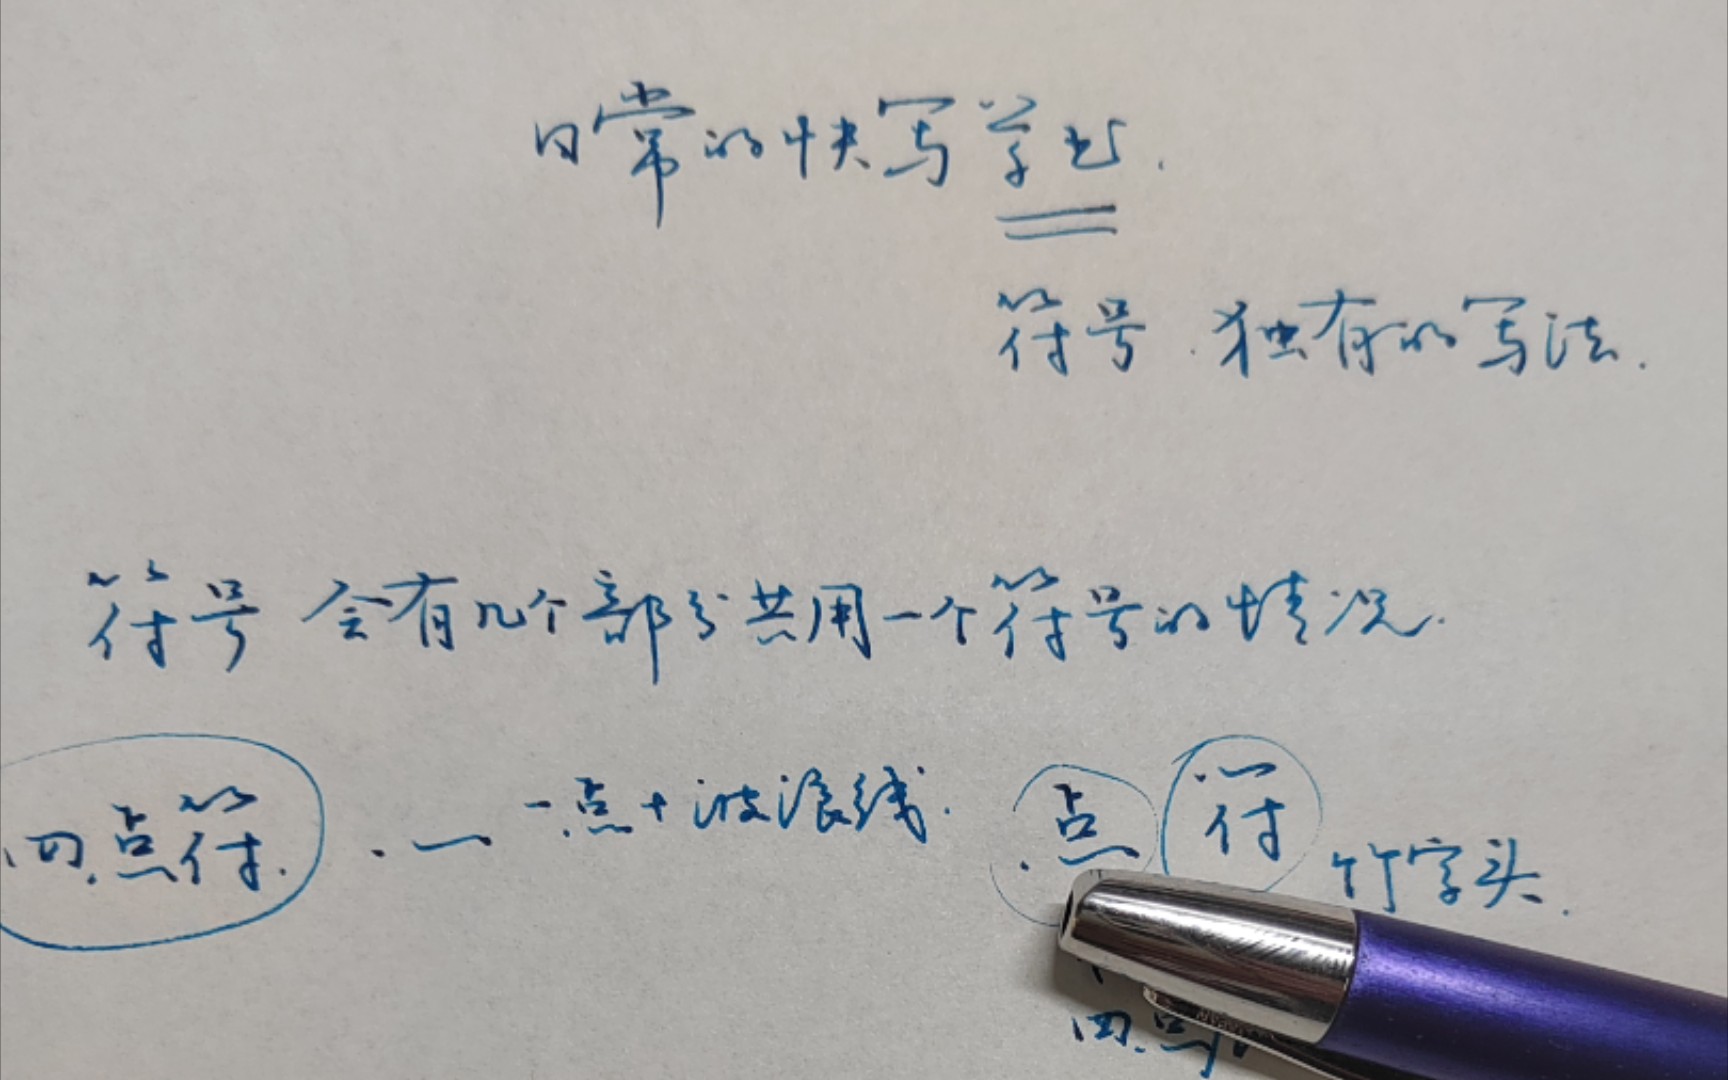 日常的快写草书.
符号.独有的写法.
符号 会有几个部分共用一个符号的情况.
四点符. 一点+波浪线. 点 符 竹字头.
四点